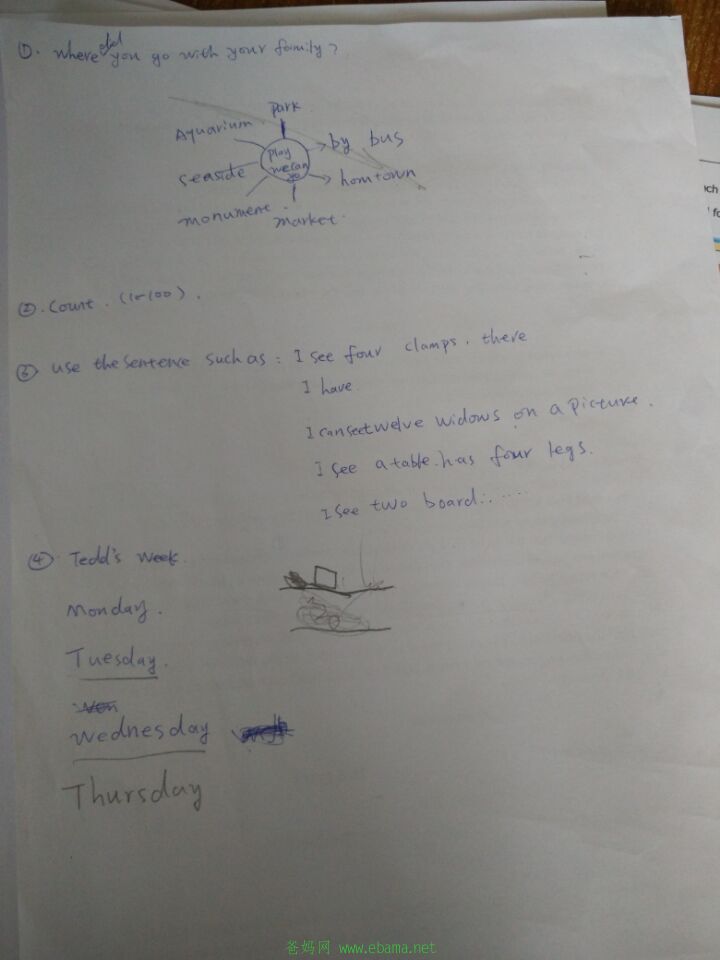 ①. Where did you go with your family?
park
Aquarium
by bus
play
we can
go
seaside
homtown
monument
market.
②. Count. (1-100).
③ use the sentence such as: I see four clamps. there
I have.
I can see twelve widows on a picture.
I see a table. has four legs.
I see two board......
④ Tedd's week.
Monday.
Tuesday.
Wen
Wednesday
Thursday
uch
爸妈网 www.ebama.net